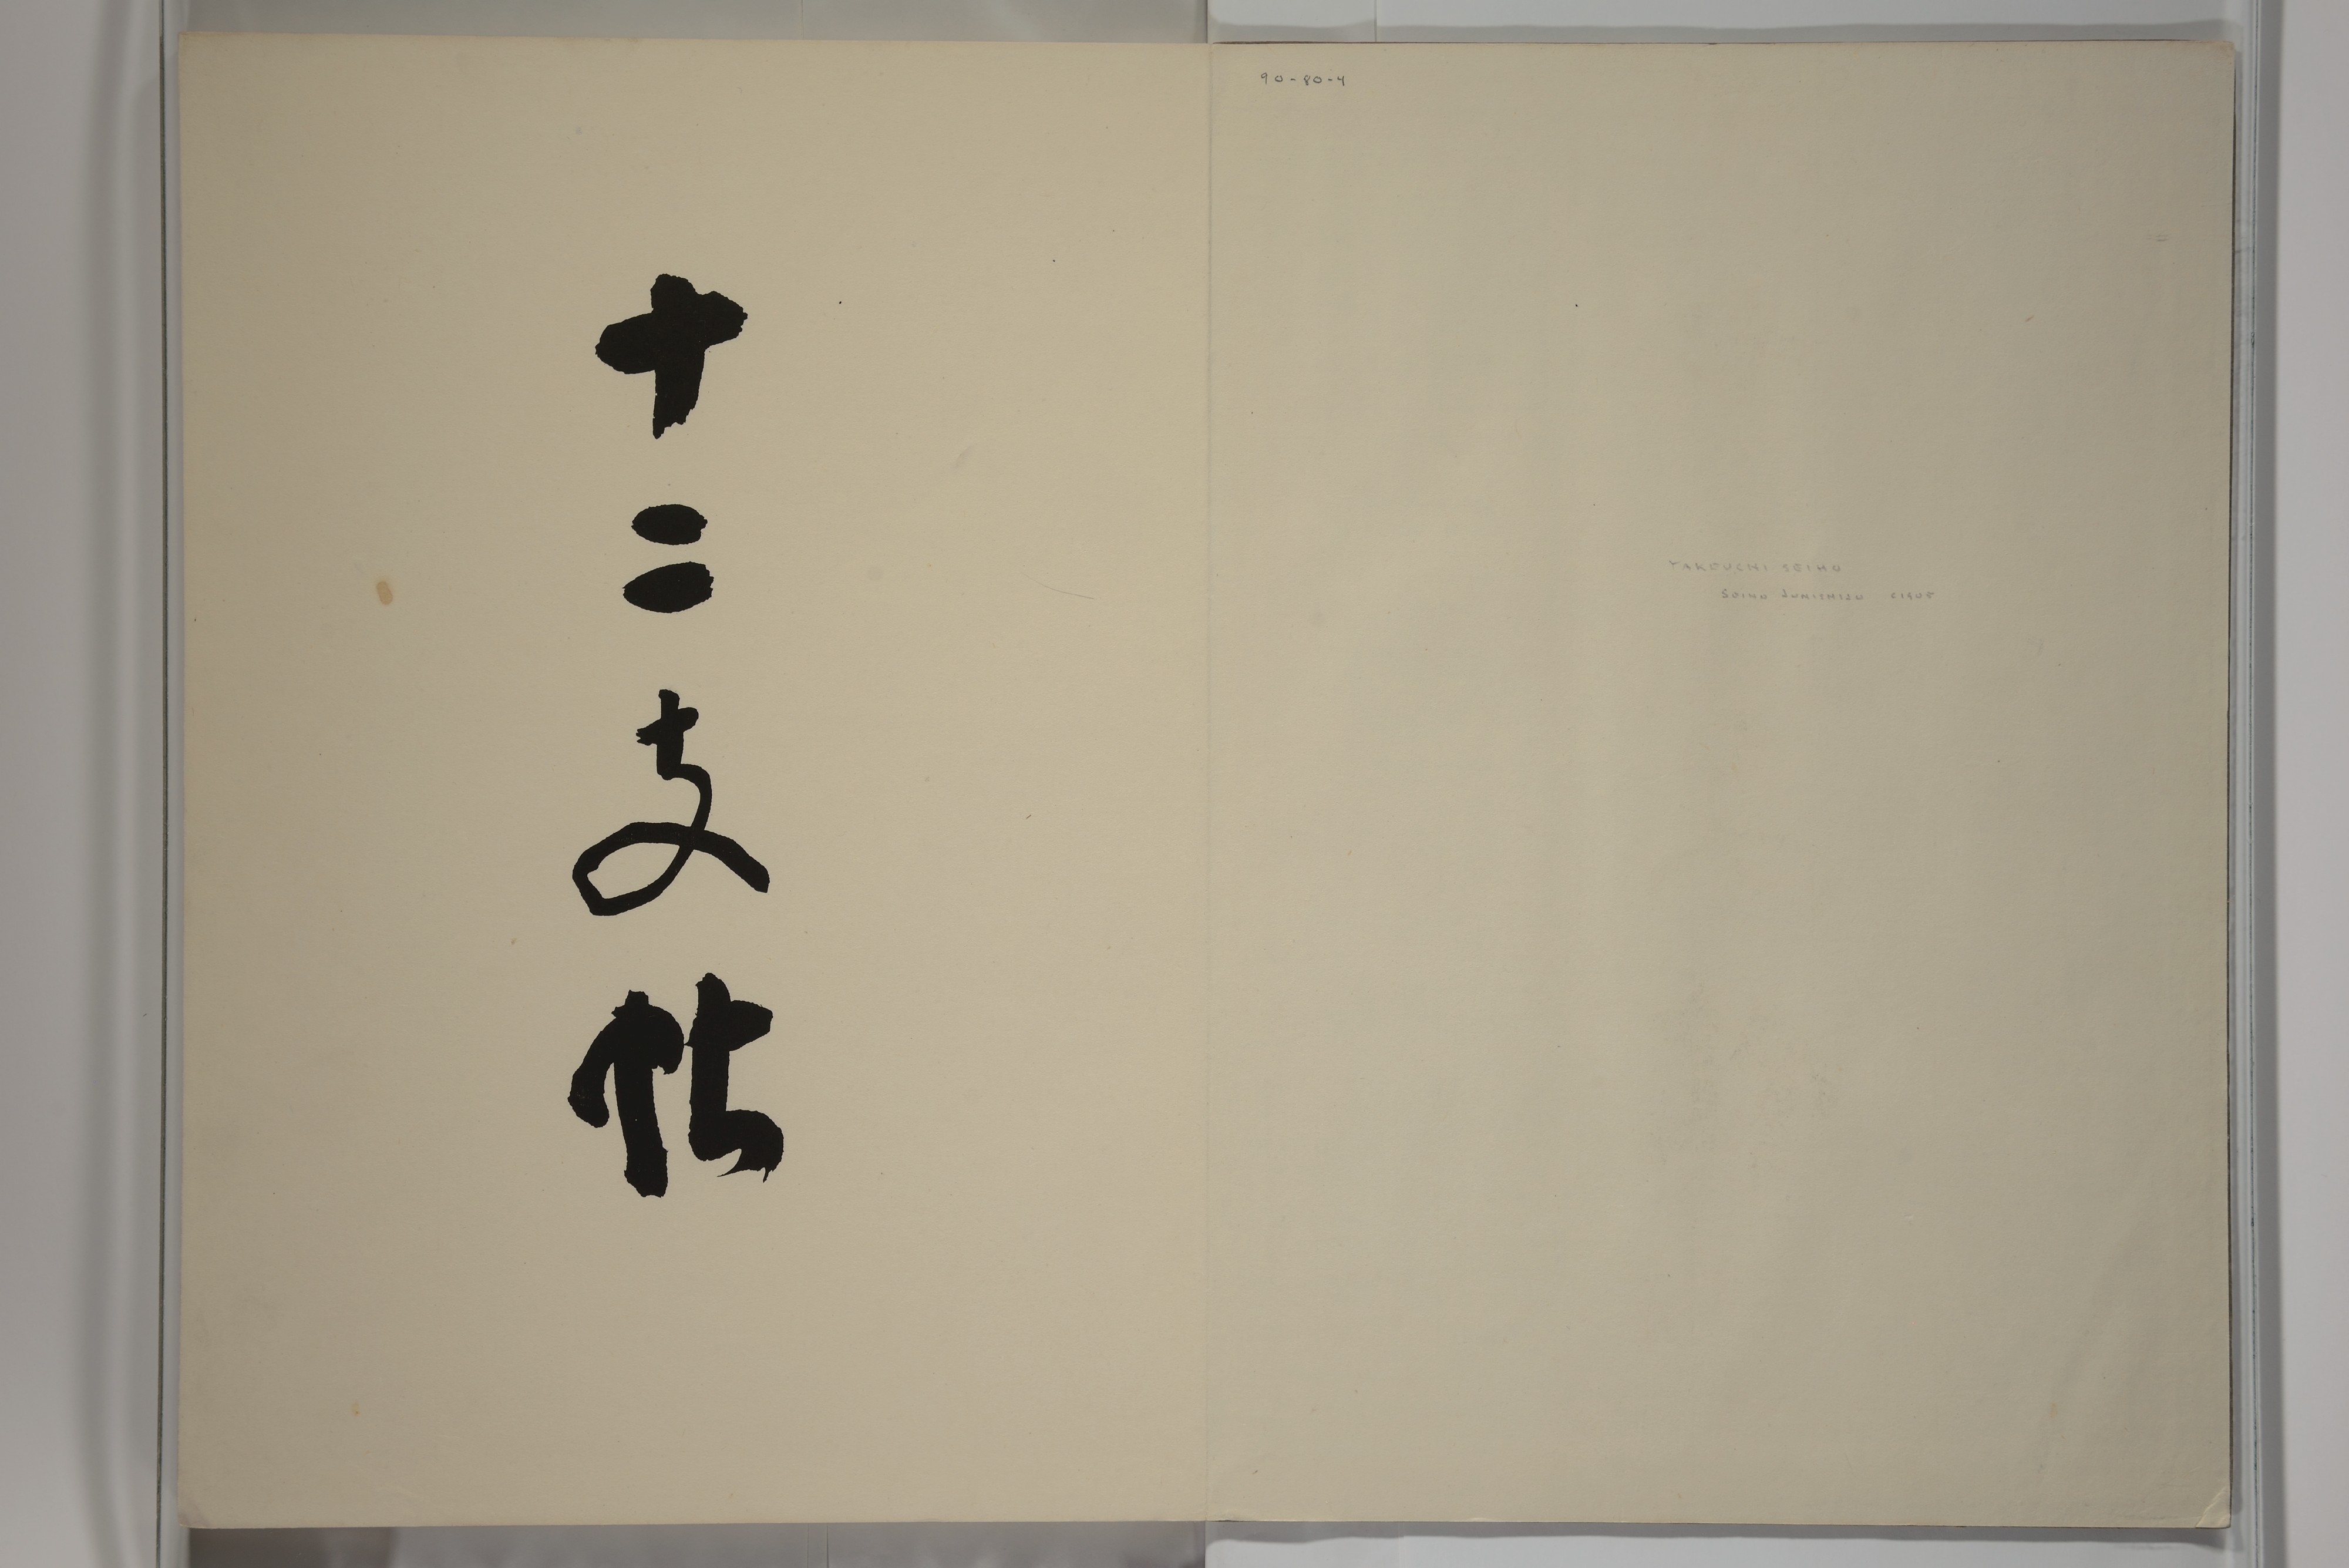 90-80-4
TAKOUCHI SEIHO
SEIHO JUNISHIJU C1905
十二支帖